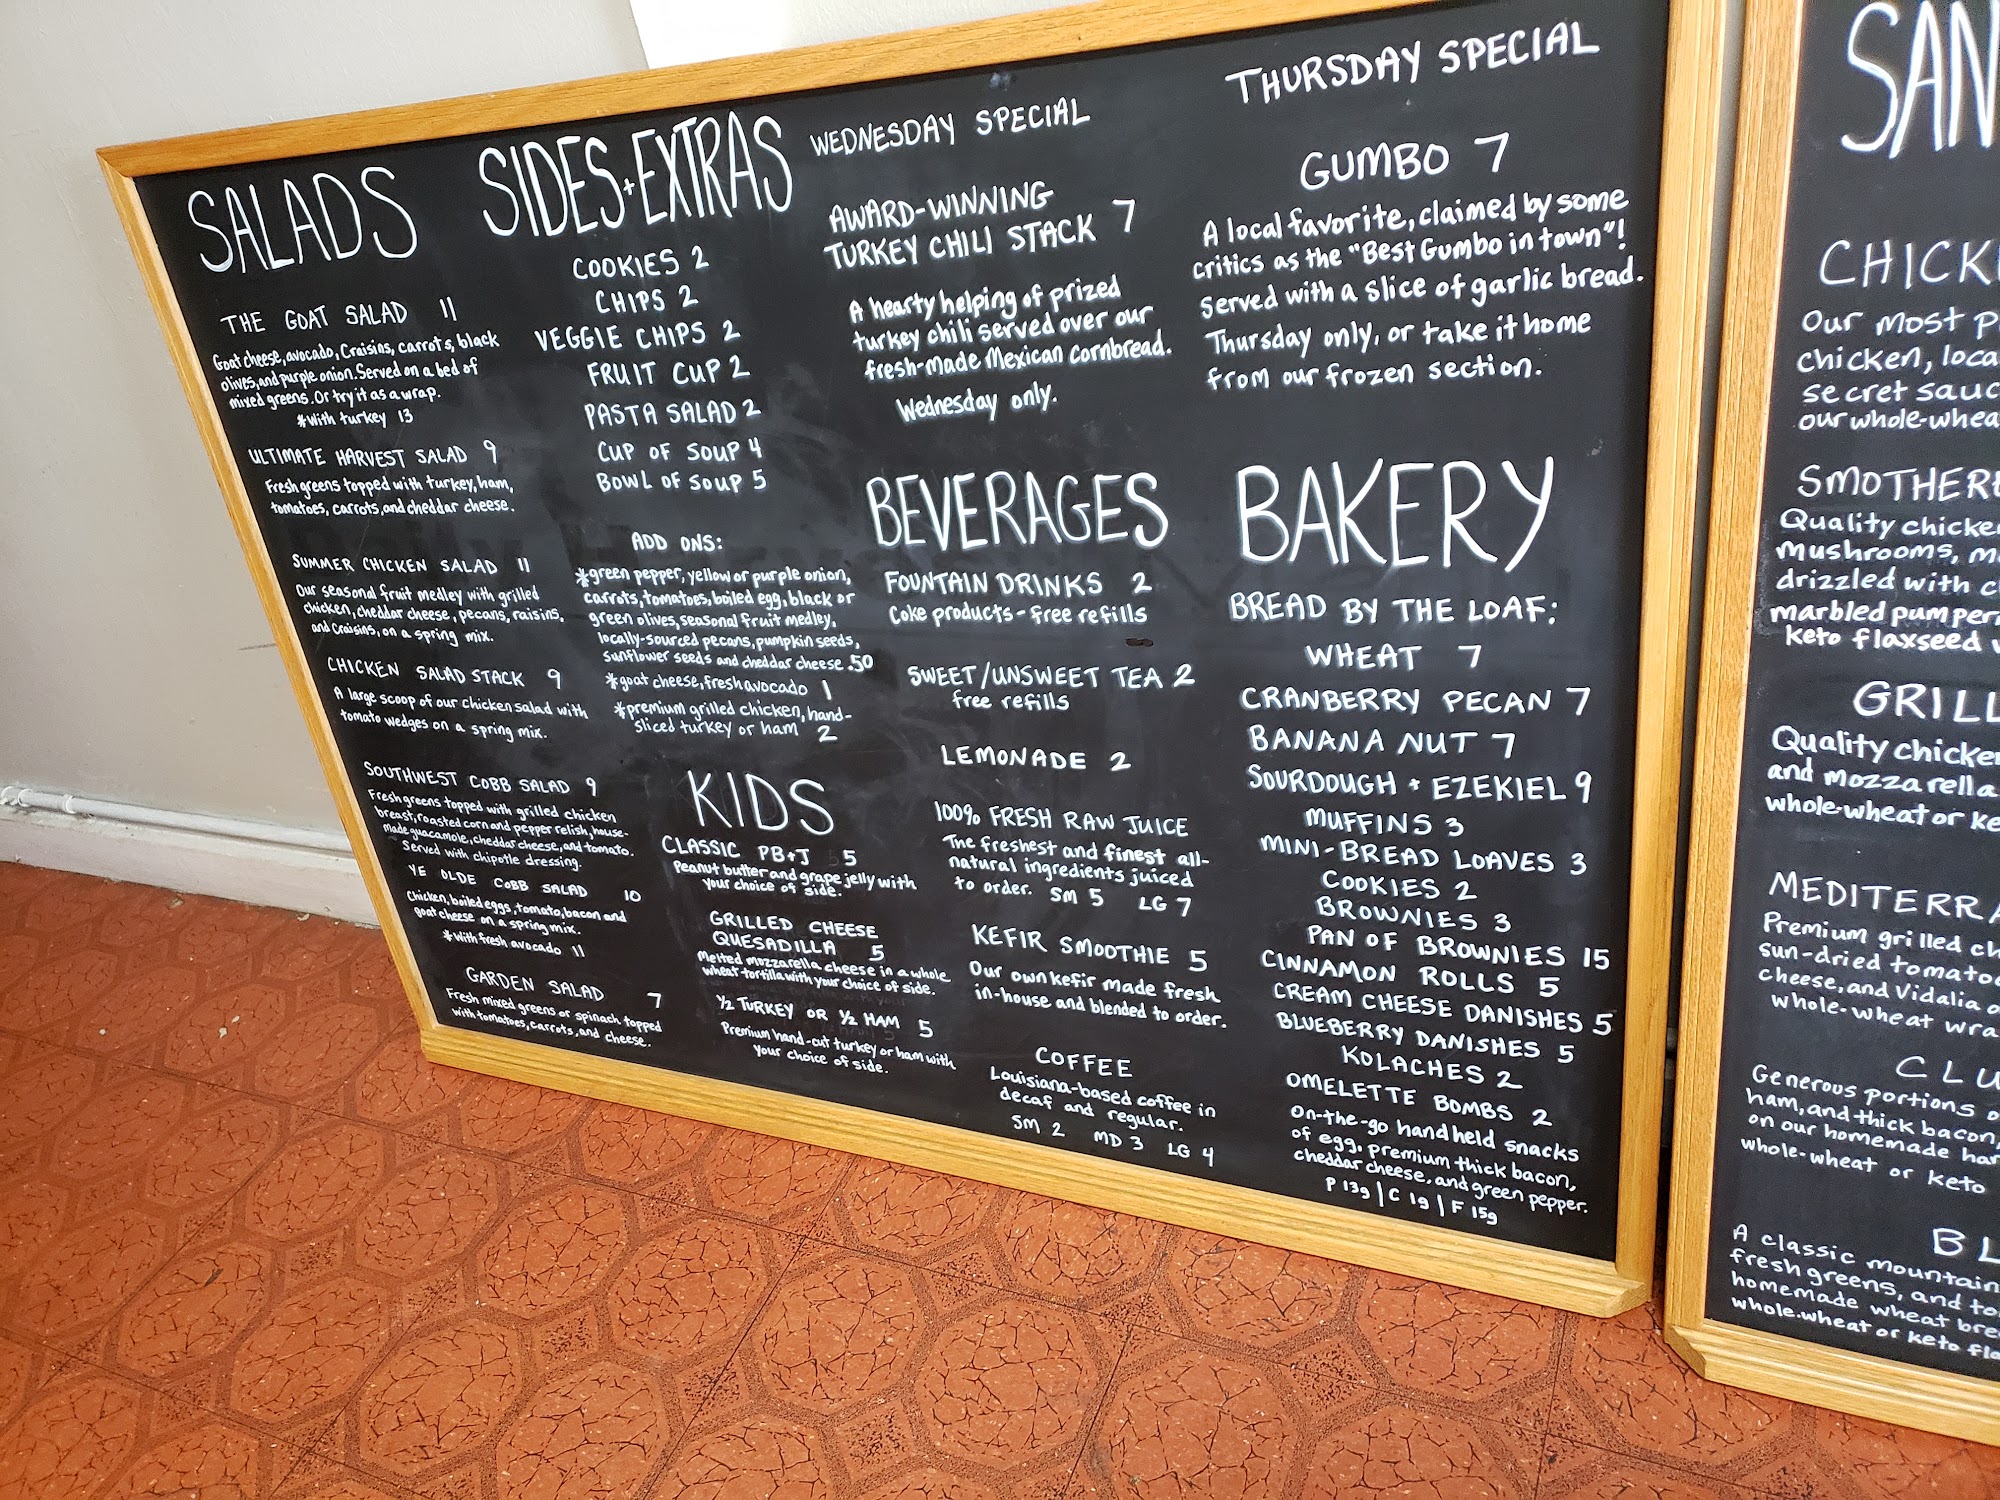 SALADS
THE GOAT SALAD 11
Goat cheese, avocado, Craisins, carrots, black
olives, and purple onion. Served on a bed of
mixed greens. Or try it as a wrap.
*With turkey 13
ULTIMATE HARVEST SALAD 9
Fresh greens topped with turkey, ham,
tomatoes, carrots, and cheddar cheese.
SUMMER CHICKEN SALAD 11
Our seasonal fruit medley with grilled
chicken, cheddar cheese, pecans, raisins,
and Craisins, on a spring mix.
CHICKEN SALAD STACK 9
A large scoop of our chicken salad with
tomato wedges on a spring mix.
SOUTHWEST COBB SALAD 9
Fresh greens topped with grilled chicken
breast, roasted corn and pepper relish, house-
made guacamole, cheddar cheese, and tomato.
Served with chipotle dressing.
YE OLDE COBB SALAD 10
Chicken, boiled eggs, tomato, bacon and
goat cheese on a spring mix.
*With fresh avocado 11
GARDEN SALAD 7
Fresh mixed greens or spinach topped
with tomatoes, carrots, and cheese.
SIDES+EXTRAS
COOKIES 2
CHIPS 2
VEGGIE CHIPS 2
FRUIT CUP 2
PASTA SALAD 2
CUP OF SOUP 4
BOWL OF SOUP 5
ADD ONS:
*green pepper, yellow or purple onion,
carrots, tomatoes, boiled egg, black or
green olives, seasonal fruit medley,
locally-sourced pecans, pumpkin seeds,
sunflower seeds and cheddar cheese .50
*goat cheese, fresh avocado 1
*premium grilled chicken, hand-
sliced turkey or ham 2
KIDS
CLASSIC PB+J 5
Peanut butter and grape jelly with
your choice of side.
GRILLED CHEESE
QUESADILLA 5
Melted mozzarella cheese in a whole
wheat tortilla with your choice of side.
1/2 TURKEY OR 1/2 HAM 5
Premium hand-cut turkey or ham with
your choice of side.
WEDNESDAY SPECIAL
AWARD-WINNING
TURKEY CHILI STACK 7
A hearty helping of prized
turkey chili served over our
fresh-made Mexican Cornbread.
Wednesday only.
BEVERAGES
FOUNTAIN DRINKS 2
Coke products - free refills
SWEET/UNSWEET TEA 2
free refills
LEMONADE 2
100% FRESH RAW JUICE
The freshest and finest all-
natural ingredients juiced
to order. SM 5 LG 7
KEFIR SMOOTHIE 5
Our own kefir made fresh
in-house and blended to order.
COFFEE
Louisiana-based coffee in
decaf and regular.
SM 2 MD 3 LG 4
THURSDAY SPECIAL
GUMBO 7
A local favorite, claimed by some
critics as the "Best Gumbo in town"!
Served with a slice of garlic bread.
Thursday only, or take it home
from our frozen section.
BAKERY
BREAD BY THE LOAF:
WHEAT 7
CRANBERRY PECAN 7
BANANA NUT 7
SOURDOUGH + EZEKIEL 9
MUFFINS 3
MINI-BREAD LOAVES 3
COOKIES 2
BROWNIES 3
PAN OF BROWNIES 15
CINNAMON ROLLS 5
CREAM CHEESE DANISHES 5
BLUEBERRY DANISHES 5
KOLACHES 2
OMELETTE BOMBS 2
On-the-go handheld snacks
of egg, premium thick bacon,
cheddar cheese, and green pepper.
P 13g | C 1g | F 15g
SAN
CHICK
Our most p
chicken, loca
secret sauc
our whole-whea
SMOTHER
Quality chicke
mushrooms, m
drizzled with c
marbled pumper
keto flaxseed
GRILL
Quality chicke
and mozzarella
whole-wheat or ke
MEDITERRA
Premium grilled ch
sun-dried tomato
cheese, and Vidalia o
whole-wheat wra
CLU
Generous portions o
ham, and thick bacon,
on our homemade har
whole-wheat or keto
BL
A classic mountain
fresh greens, and to
homemade wheat bre
whole-wheat or keto fla